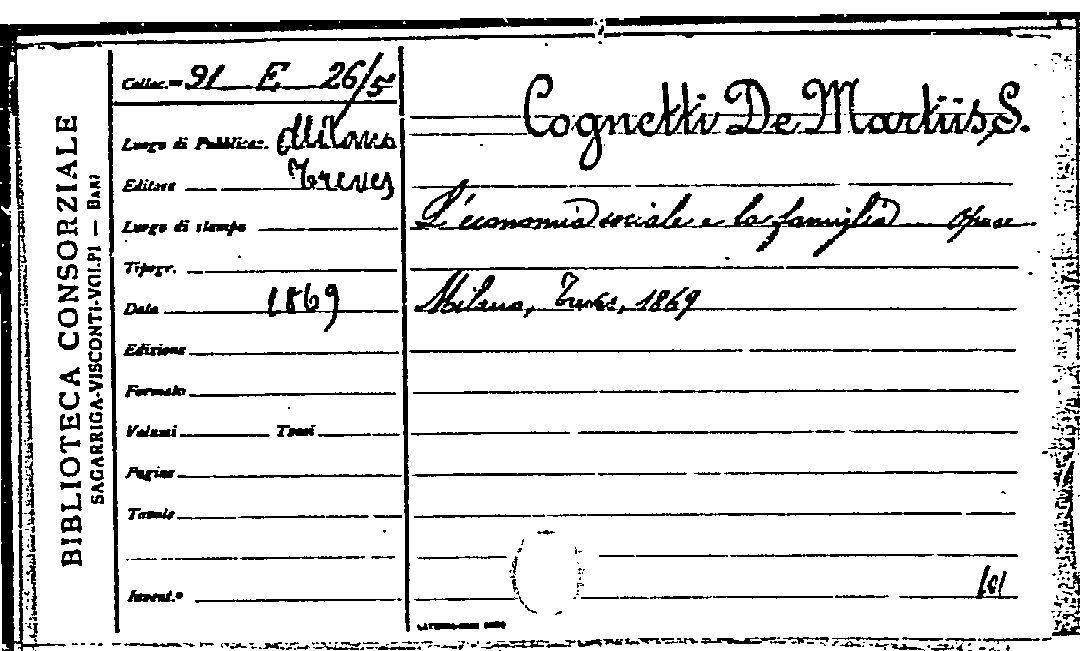 BIBLIOTECA CONSORZIALE
SAGARRIGA-VISCONTI-VOLPI — BARI
Colloc.= 91 E 26/5
Luogo di Pubblicaz. Milano
Editore Treves
Luogo di stampa
Tipogr.
Data 1869
Edizione
Formato
Volumi Tomi
Pagine
Tavole
Invent.º
Cognetti De Martiis S.
L'economia sociale e la famiglia
Milano, Treves, 1869